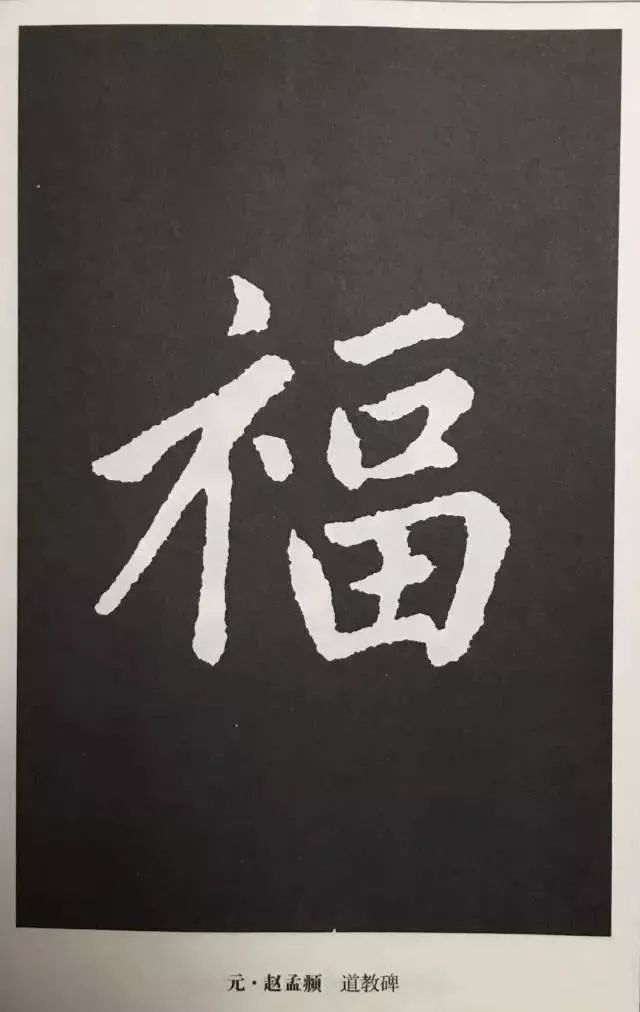 福
元·赵孟頫 道教碑